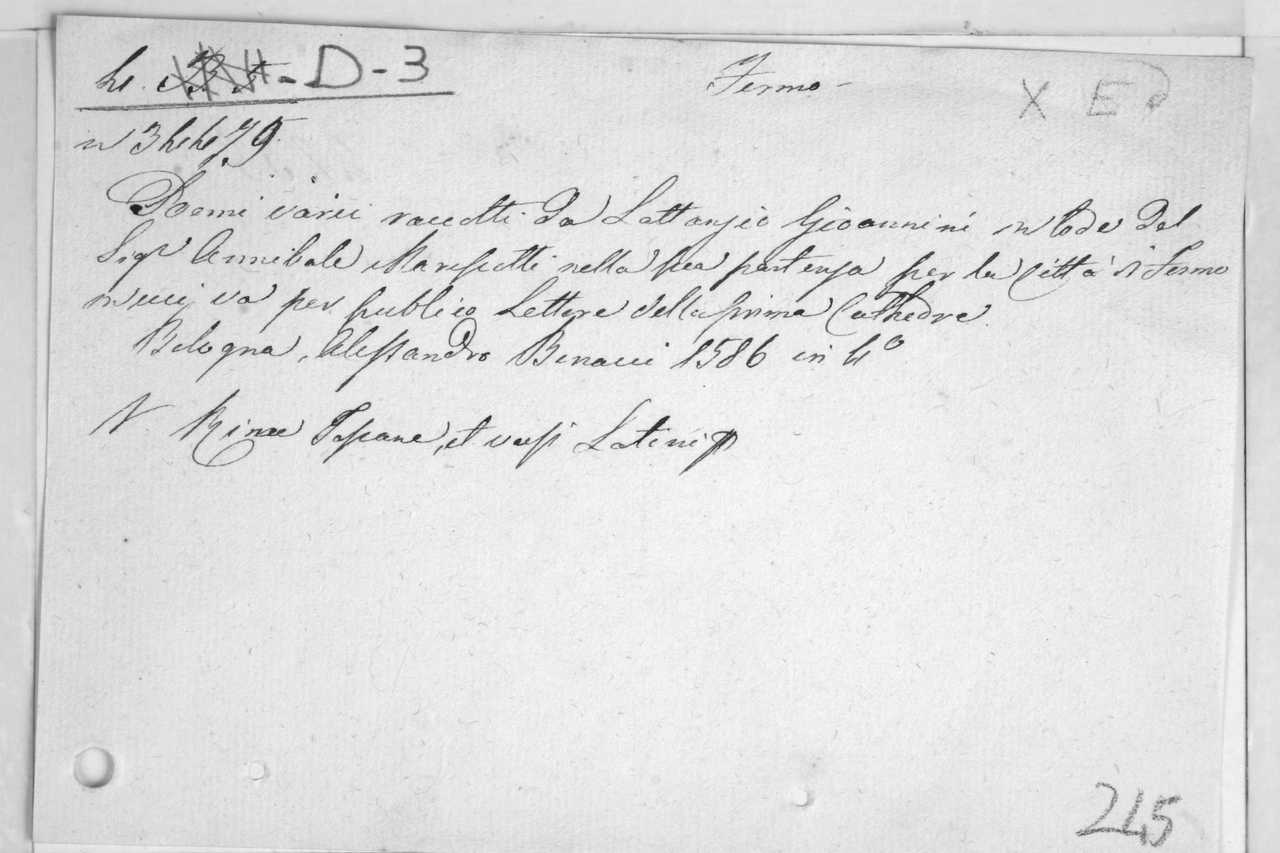 4. - D-3
Fermo -
X E
n 34479
Poemi varii raccolti da Lattanzio Gioannini in lode del
Sigr Annibale Marescotti nella sua partenza per la città di Fermo
in cui va per publico Lettore della prima Cathedra.
Bologna, Alessandro Benacci 1586 in 4º
V. Rime Toscane, et versi Latini
245